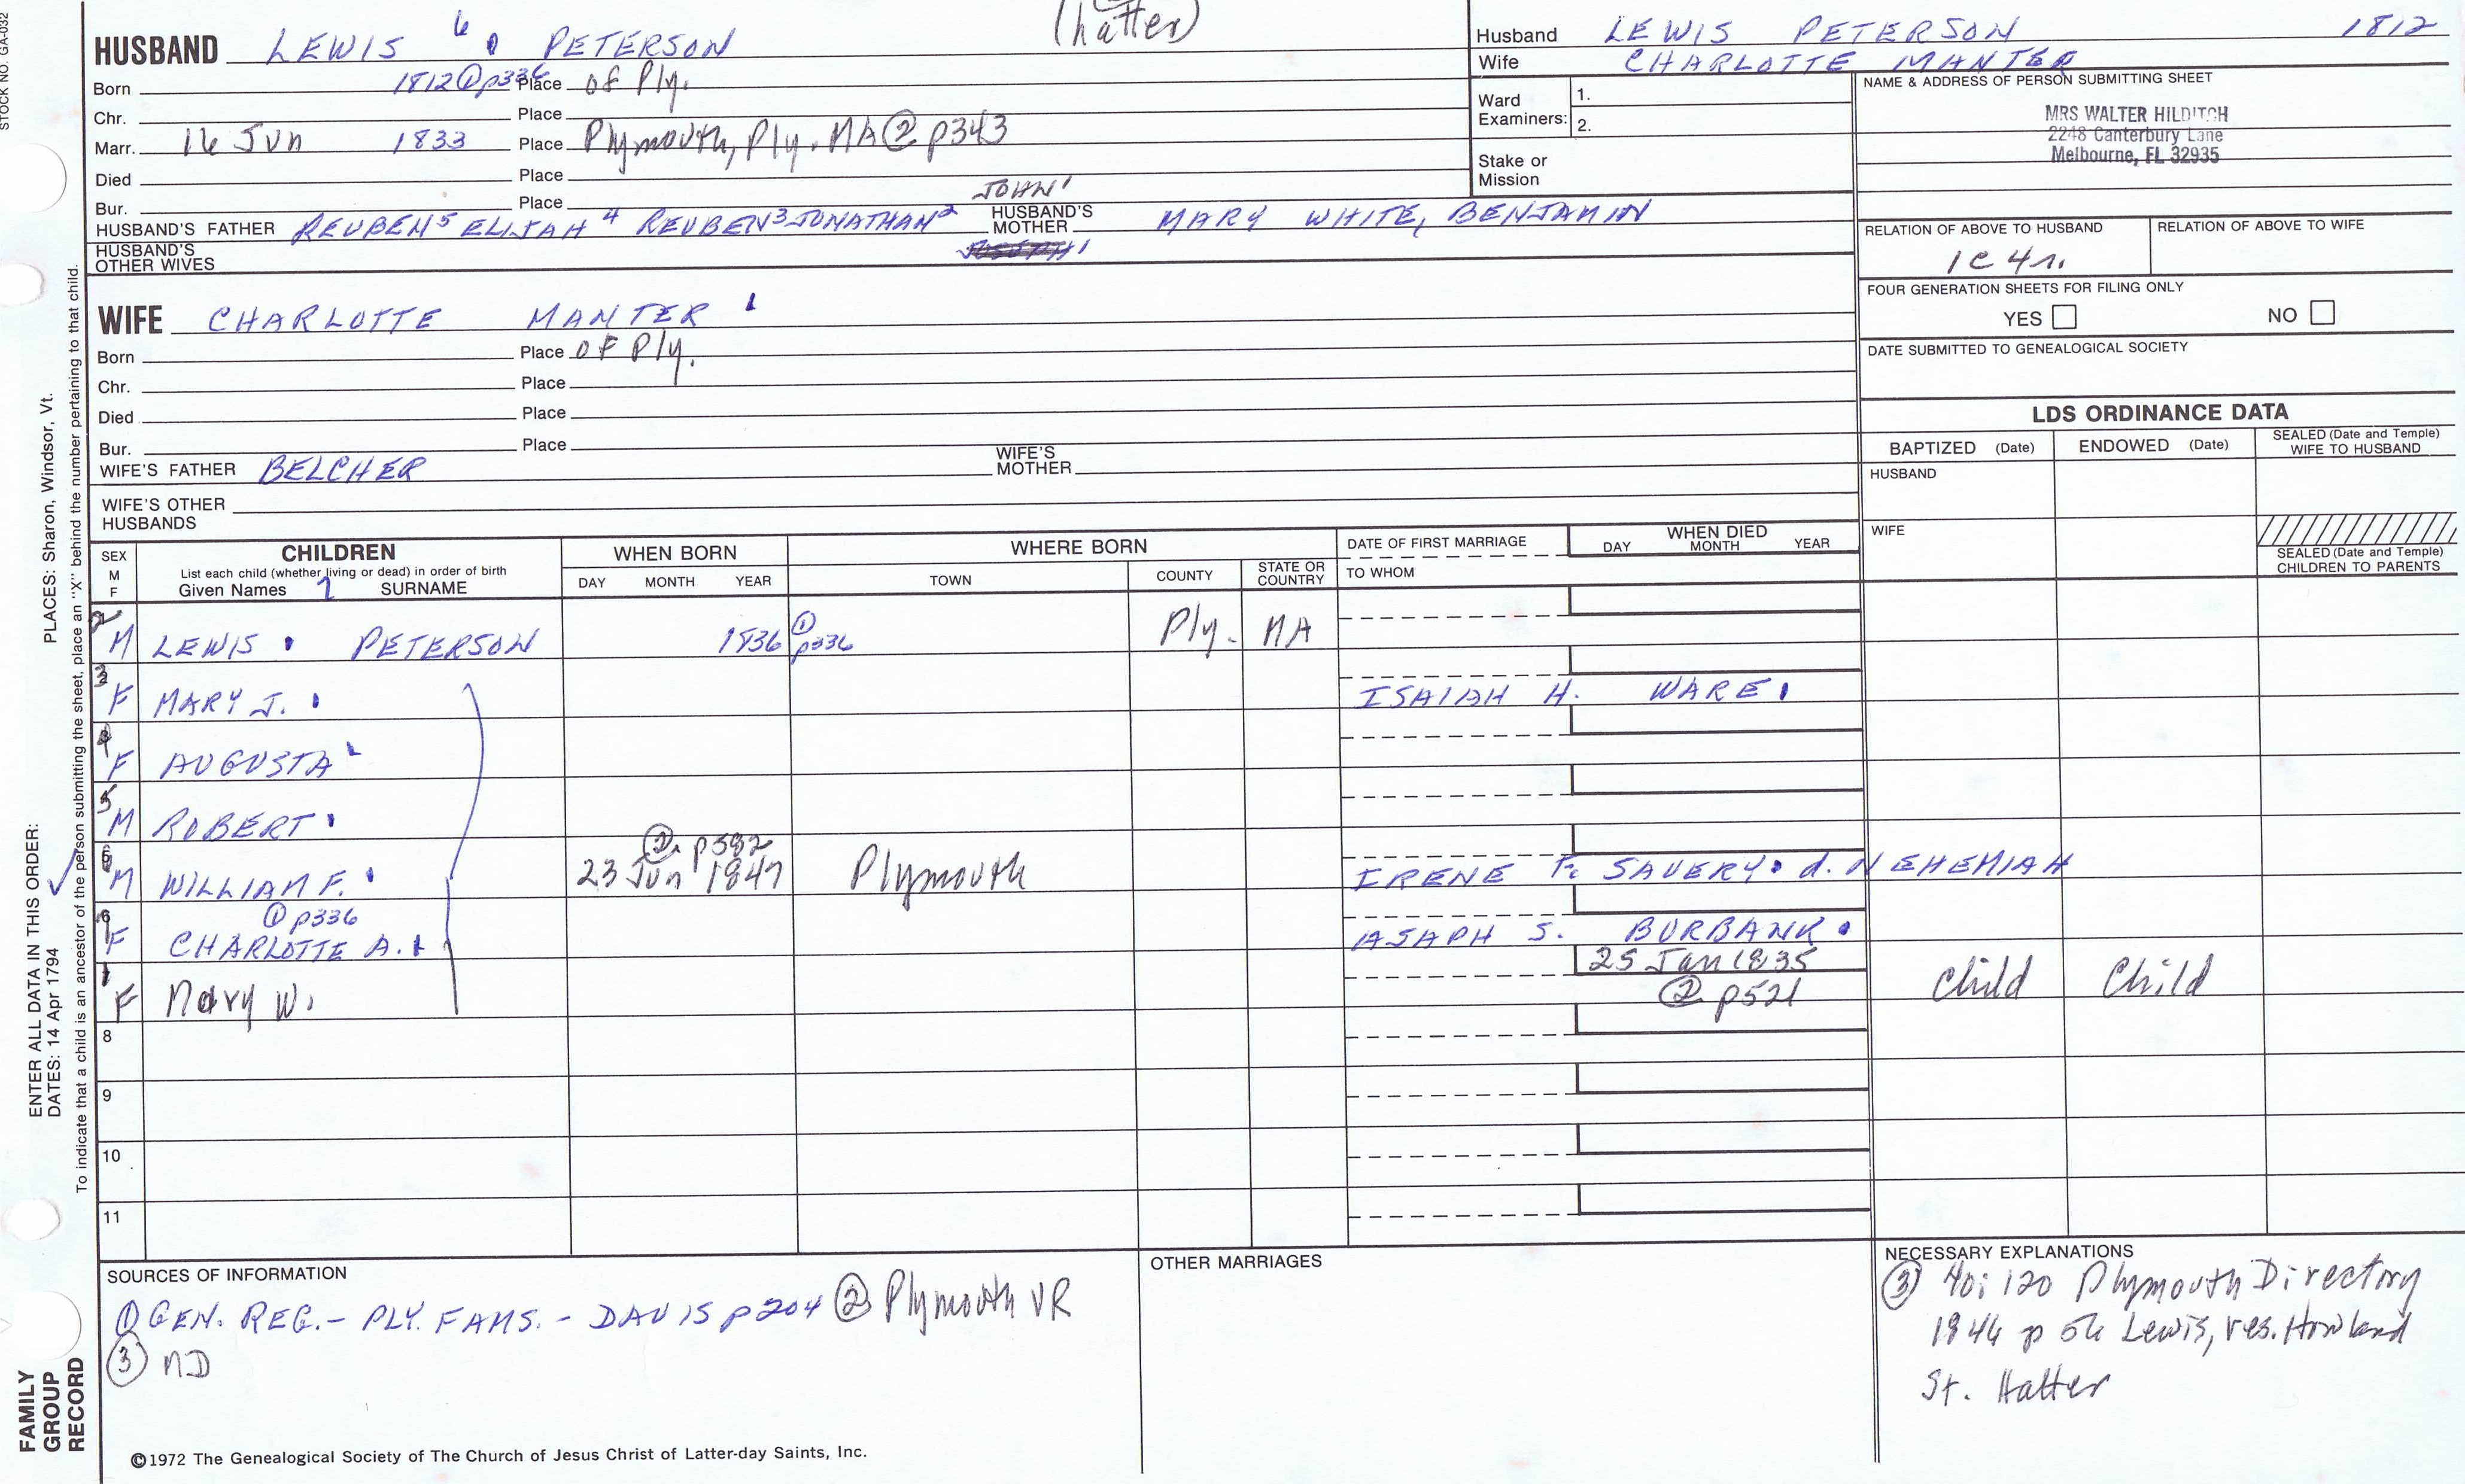 STOCK NO. GA-032
(hatter)
HUSBAND LEWIS 6 PETERSON
Born 1812 ① p336 Place of Ply.
Chr. Place
Marr. 16 Jun 1833 Place Plymouth, Ply. MA ② p343
Died Place
Bur. Place
JOHN 1
HUSBAND'S FATHER REUBEN 5 ELIJAH 4 REUBEN 3 JONATHAN 2 HUSBAND'S MOTHER MARY WHITE, BENJAMIN
HUSBAND'S OTHER WIVES
Husband LEWIS PETERSON 1812
Wife CHARLOTTE MANTER
Ward Examiners: 1.
2.
Stake or Mission
NAME & ADDRESS OF PERSON SUBMITTING SHEET
MRS WALTER HILDITCH
2248 Canterbury Lane
Melbourne, FL 32935
RELATION OF ABOVE TO HUSBAND RELATION OF ABOVE TO WIFE
1C 4r.
FOUR GENERATION SHEETS FOR FILING ONLY
YES NO
DATE SUBMITTED TO GENEALOGICAL SOCIETY
WIFE CHARLOTTE MANTER
Born Place OF Ply.
Chr. Place
Died Place
Bur. Place
WIFE'S FATHER BELCHER WIFE'S MOTHER
WIFE'S OTHER HUSBANDS
LDS ORDINANCE DATA
BAPTIZED (Date) ENDOWED (Date) SEALED (Date and Temple) WIFE TO HUSBAND
HUSBAND
WIFE
SEALED (Date and Temple) CHILDREN TO PARENTS
SEX M F
CHILDREN
List each child (whether living or dead) in order of birth
Given Names 7 SURNAME
WHEN BORN
DAY MONTH YEAR
WHERE BORN
TOWN COUNTY STATE OR COUNTRY
DATE OF FIRST MARRIAGE
TO WHOM
WHEN DIED
DAY MONTH YEAR
2 M LEWIS PETERSON 1836 ① p336 Ply. MA
3 F MARY J. ISAIAH H. WARE
4 F AUGUSTA
5 M ROBERT
6 M WILLIAM F. 23 Jun 1847 ② p582 Plymouth IRENE F. SAVERY d. NEHEMIAH
F CHARLOTTE A. ① p336 ASAPH S. BURBANK
1 F Mary W. 25 Jan 1835 ② p521 Child Child
8
9
10
11
SOURCES OF INFORMATION
① GEN. REG. - PLY. FAMS. - DAVIS p204 ② Plymouth VR
③ ND
OTHER MARRIAGES
NECESSARY EXPLANATIONS
③ 40:120 Plymouth Directory
1846 p 56 Lewis, res. Howland
St. Hatter
©1972 The Genealogical Society of The Church of Jesus Christ of Latter-day Saints, Inc.
ENTER ALL DATA IN THIS ORDER:
DATES: 14 Apr 1794 PLACES: Sharon, Windsor, Vt.
To indicate that a child is an ancestor of the person submitting the sheet, place an "X" behind the number pertaining to that child.
FAMILY
GROUP
RECORD